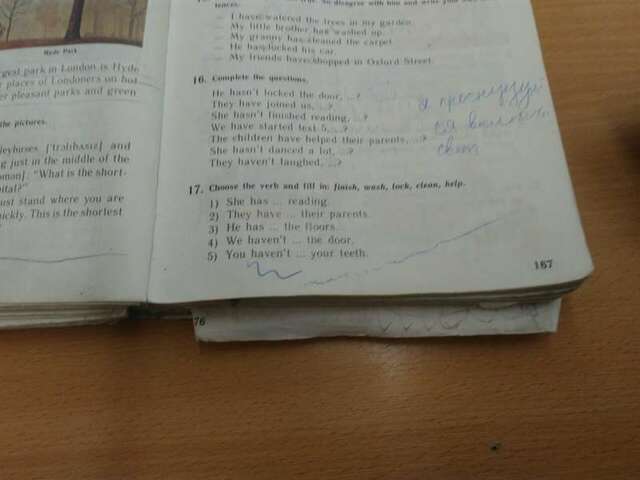 tences.
— I have watered the trees in my garden.
— My little brother has washed up.
— My granny has cleaned the carpet.
— He has locked his car.
— My friends have shopped in Oxford Street.
16. Complete the questions.
He hasn't locked the door, ...?
They have joined us, ...?
She hasn't finished reading, ...?
We have started text 5, ...?
The children have helped their parents, ...?
She hasn't danced a lot, ...?
They haven't laughed, ...?
17. Choose the verb and fill in: finish, wash, lock, clean, help.
1) She has ... reading.
2) They have ... their parents.
3) He has ... the floors.
4) We haven't ... the door.
5) You haven't ... your teeth.
167
Hyde Park
rgest park in London is Hyde
places of Londoners on hot
er pleasant parks and green
the pictures.
and
g just in the middle of the
oman]: "What is the short-
pital?"
ust stand where you are
uickly. This is the shortest
76